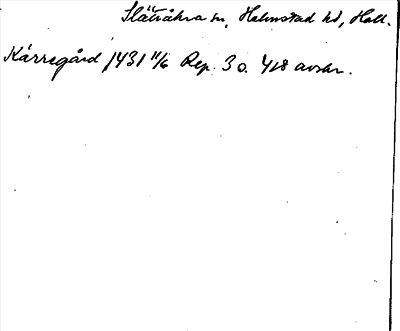 Slättåkra sn, Halmstad hd, Hall.
Kårregård 1431 11/6 Rep. 30. 428 avskr.